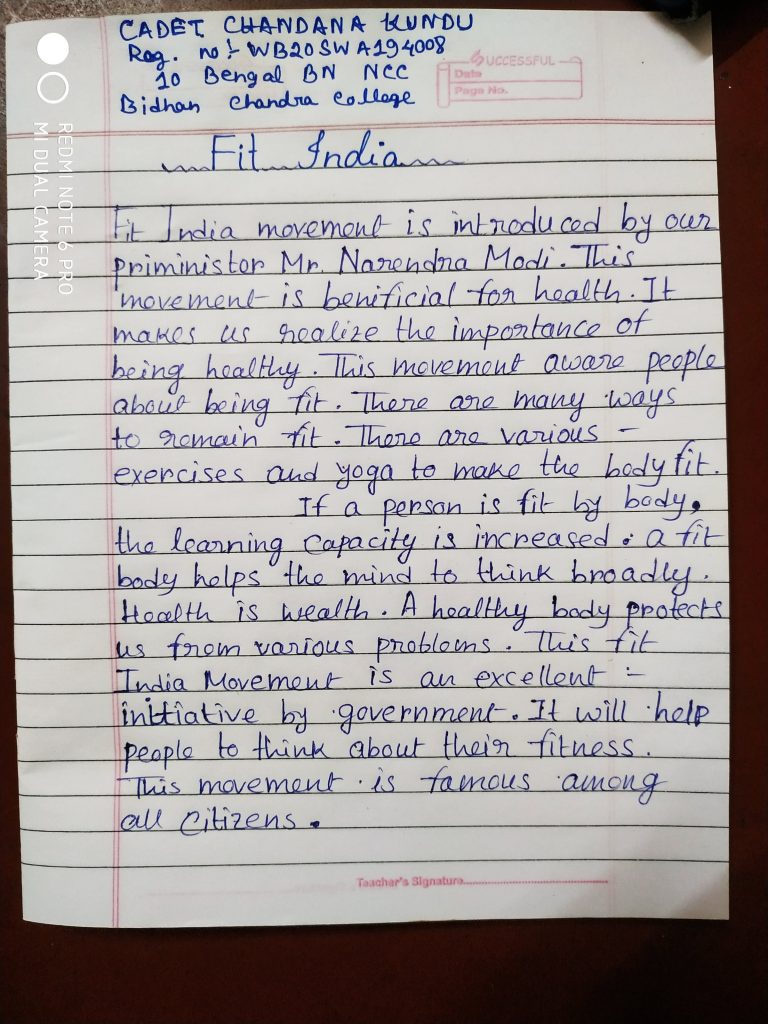 CADET CHANDANA KUNDU
Reg. no:- WB20SWA194008
10 Bengal BN NCC
Bidhan Chandra College
SUCCESSFUL
Date
Page No.
REDMI NOTE 6 PRO
MI DUAL CAMERA
Fit India
Fit India movement is introduced by our
priministor Mr. Narendra Modi. This
movement is benificial for health. It
makes us realize the importance of
being healthy. This movement aware people
about being fit. There are many ways
to remain fit. There are various -
exercises and yoga to make the body fit.
If a person is fit by body,
the learning capacity is increased. a fit
body helps the mind to think broadly.
Health is wealth. A healthy body protects
us from various problems. This fit
India Movement is an excellent :-
initiative by government. It will help
people to think about their fitness.
This movement is famous among
all citizens.
Teacher's Signature